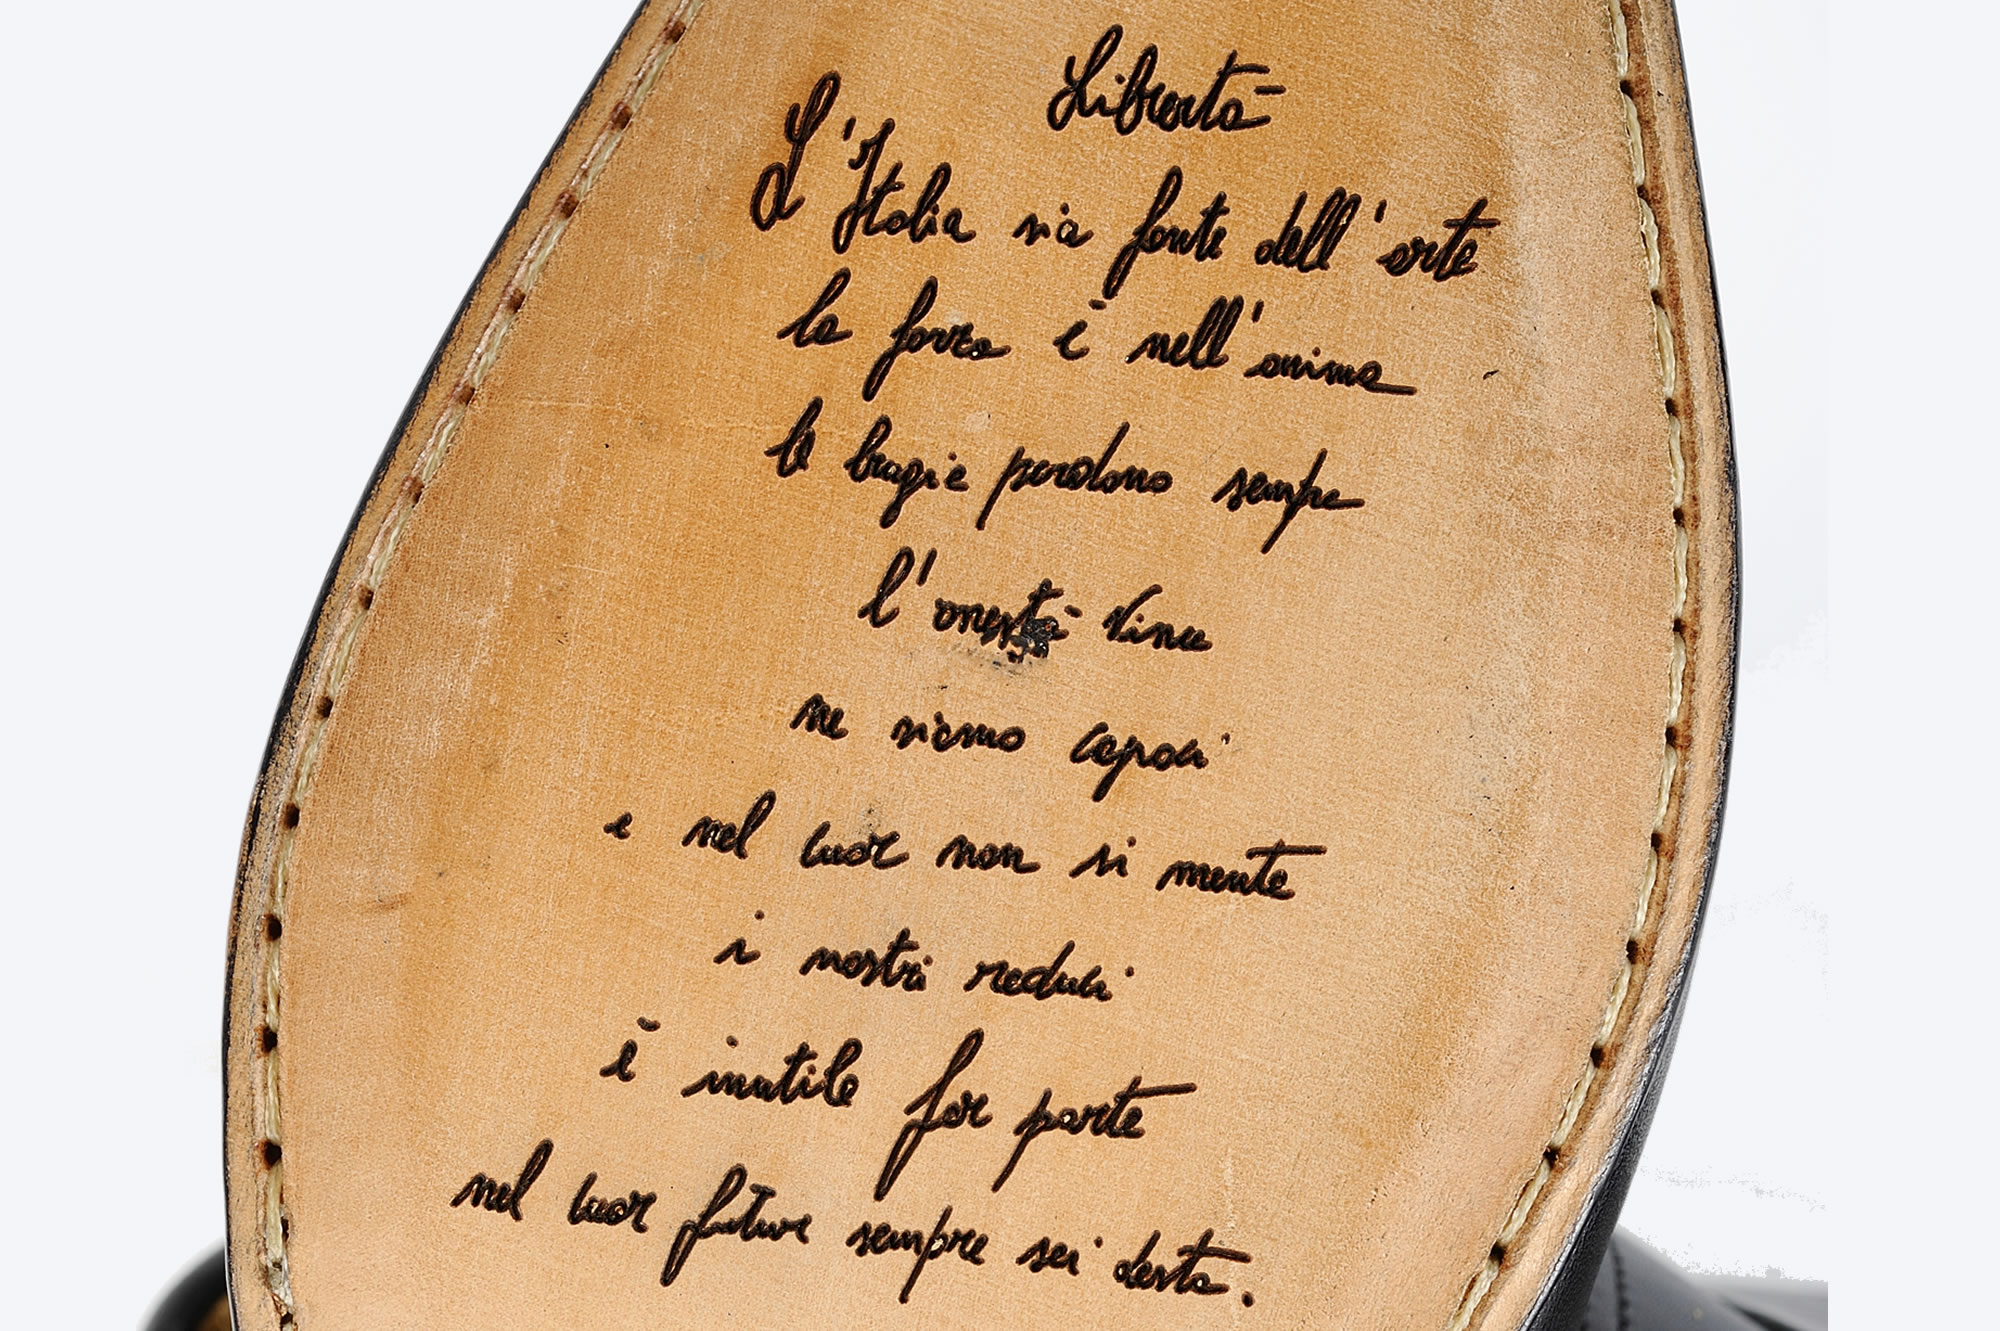 Libertà
L'Italia sia fonte dell'arte
la forza è nell'anima
le bugie perdono sempre
l'onestà vince
ne siamo capaci
e nel cuor non si mente
i nostri reduci
è inutile far parte
nel cuor futuro sempre sei desta.